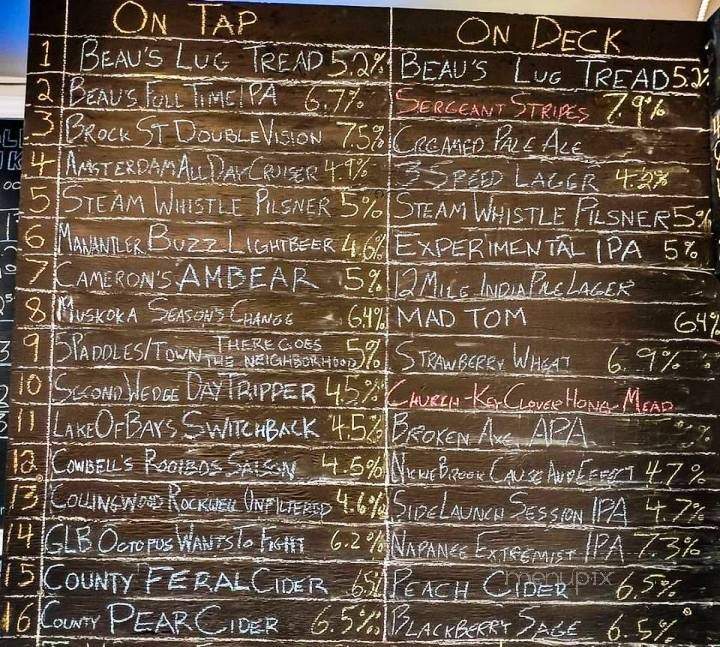 ON TAP ON DECK
1 BEAU'S LUG TREAD 5.2% BEAU'S LUG TREAD 5.2%
2 BEAU'S FULL TIME IPA 6.7% SERGEANT STRIPES 7.9%
3 BROCK ST DOUBLE VISION 7.5% CREAMED PALE ALE
4 AMSTERDAM ALL DAY CRUISER 4.9% 3 SPEED LAGER 4.2%
5 STEAM WHISTLE PILSNER 5% STEAM WHISTLE PILSNER 5%
6 MANANTLER BUZZ LIGHTBEER 4.6% EXPERIMENTAL IPA 5%
7 CAMERON'S AMBEAR 5% 12 MILE INDIA PALE LAGER
8 MUSKOKA SEASON'S CHANGE 6.4% MAD TOM 64%
9 5PADDLES/TOWN THERE GOES THE NEIGHBORHOOD 5% STRAWBERRY WHEAT 6.9%
10 SECOND WEDGE DAY TRIPPER 4.5% CHURCH-KEY CLOVER HONEY MEAD
11 LAKE OF BAYS SWITCHBACK 4.5% BROKEN AXE APA %
12 COWBELL'S ROOIBOS SAISON 4.5% NICKLE BROOK CAUSE AND EFFECT 4.7%
13 COLLINGWOOD ROCKWELL UNFILTERED 4.6% SIDE LAUNCH SESSION IPA 4.7%
14 GLB OCTOPUS WANTS TO FIGHT 6.2% NAPANEE EXTREMIST IPA 7.3%
15 COUNTY FERAL CIDER 6.5% PEACH CIDER 6.5%
menupix
16 COUNTY PEAR CIDER 6.5% BLACKBERRY SAGE 6.5%